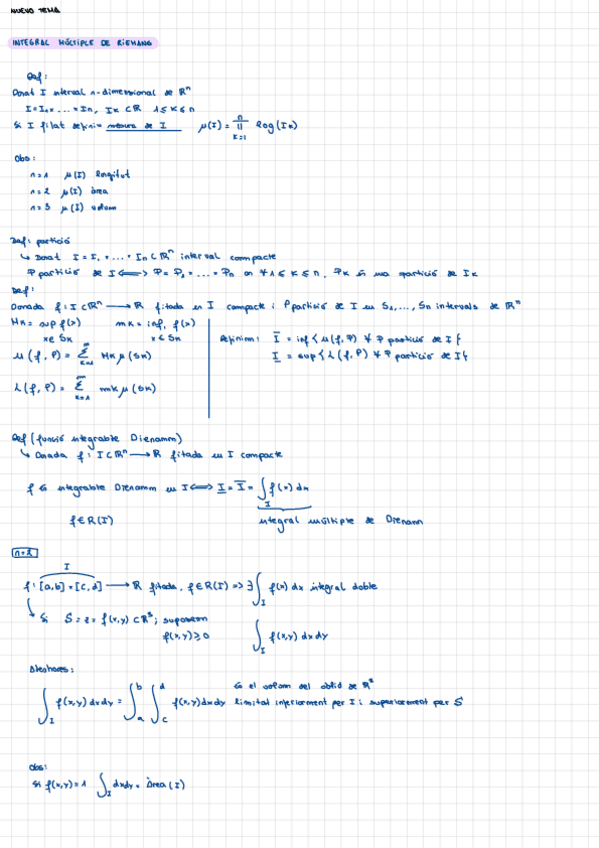 NUEVO TEMA
INTEGRAL MÚLTIPLE DE RIEMANN
Def:
Donat I interval n-dimensional de ℝⁿ
I = I₁ × ... × Iₙ, Iₖ ⊂ ℝ 1 ≤ k ≤ n
Si I fitat definim mesura de I μ(I) = ∏ₖ₌₁ⁿ long(Iₖ)
Obs:
n=1 μ(I) longitut
n=2 μ(I) àrea
n=3 μ(I) volum
Def: partició
↳ Donat I = I₁ × ... × Iₙ ⊂ ℝⁿ interval compacte
P partició de I ⟺ P = P₁ × ... × Pₙ on ∀ 1 ≤ k ≤ n, Pₖ és una partició de Iₖ
Def:
Donada f: I ⊂ ℝⁿ ⟶ ℝ fitada en I compacte i P partició de I en S₁, ..., Sₙ intervals de ℝⁿ
Mₖ = sup f(x) mₖ = inf f(x)
x ∈ Sₖ x ∈ Sₖ
Definim: I̅ = inf { μ(f, P) ∀ P partició de I }
I̲ = sup { L(f, P) ∀ P partició de I }
μ(f, P) = ∑ₖ₌₁ Mₖ μ(Sₖ)
L(f, P) = ∑ₖ₌₁ mₖ μ(Sₖ)
Def (funció integrable Driemann)
↳ Donada f: I ⊂ ℝⁿ ⟶ ℝ fitada en I compacte
f és integrable Driemann en I ⟺ I̲ = I̅ = ∫_I f(x) dx
f ∈ R(I) integral múltiple de Driemann
n=2
I
f: [a,b] × [c,d] ⟶ ℝ fitada, f ∈ R(I) => ∃ ∫_I f(x) dx integral doble
↳ Si S = z = f(x,y) ⊂ ℝ³; suposem
f(x,y) ≥ 0 ∫_I f(x,y) dxdy
Aleshores:
és el volum del sòlid de ℝ³
∫_I f(x,y) dxdy = ∫_a^b ∫_c^d f(x,y) dxdy limitat inferiorment per I i superiorment per S
Obs:
Si f(x,y) = 1 ∫_I dxdy = Àrea (I)